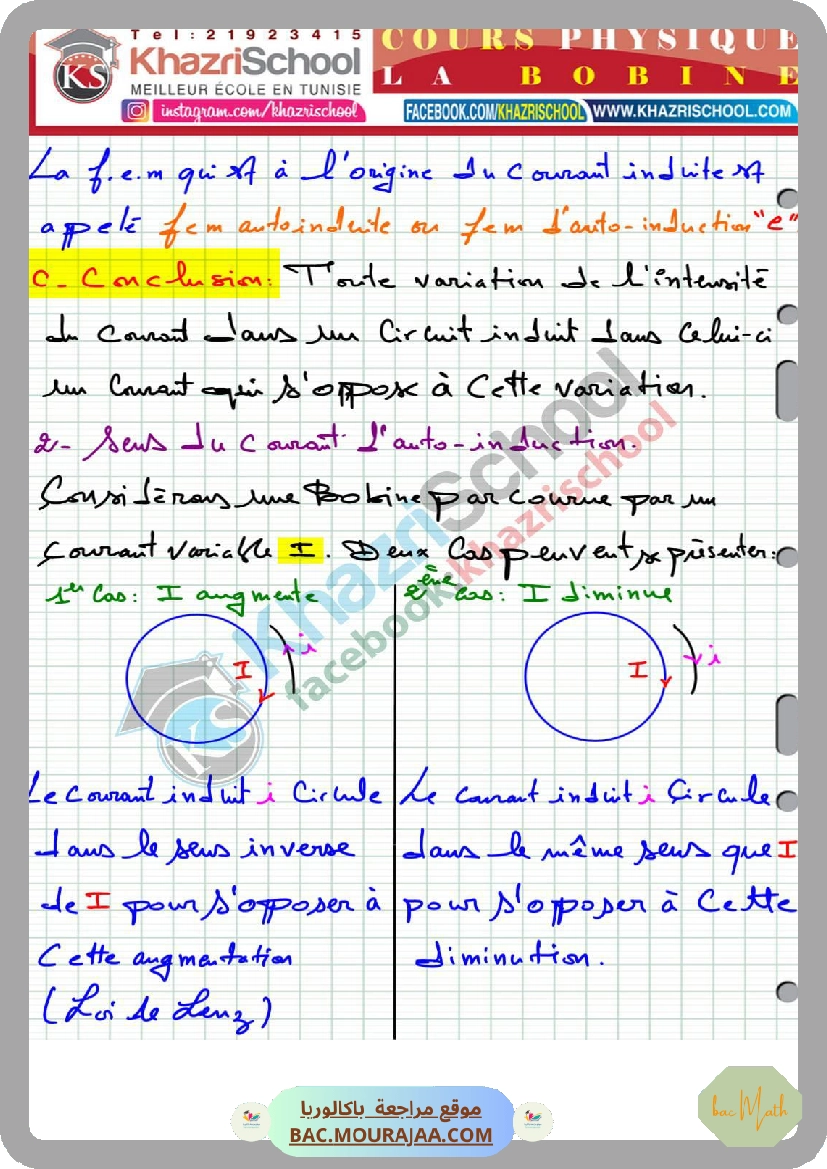 Tel:21923415
COURS PHYSIQUE
KS
KhazriSchool
LA BOBINE
MEILLEUR ÉCOLE EN TUNISIE
instagram.com/khazrischool
FACEBOOK.COM/KHAZRISCHOOL
WWW.KHAZRISCHOOL.COM
La f.e.m qui est à l'origine du courant induit est
appelé fem autoinduite ou fem d'auto-induction "e"
C- Conclusion: Toute variation de l'intensité
du courant dans un circuit induit dans celui-ci
un courant qui s'oppose à cette variation.
2- Sens du courant d'auto-induction.
Considérons une Bobine parcourue par un
courant variable I. Deux cas peuvent se présenter:
1er cas: I augmente
I
i
Le courant induit i circule
dans le sens inverse
de I pour s'opposer à
cette augmentation
(Loi de Lenz)
2ème cas: I diminue
I
i
Le courant induit i circule
dans le même sens que I
pour s'opposer à cette
diminution.
KS
KhazriSchool
facebook/khazrischool
موقع مراجعة باكالوريا
BAC.MOURAJAA.COM
bac Math